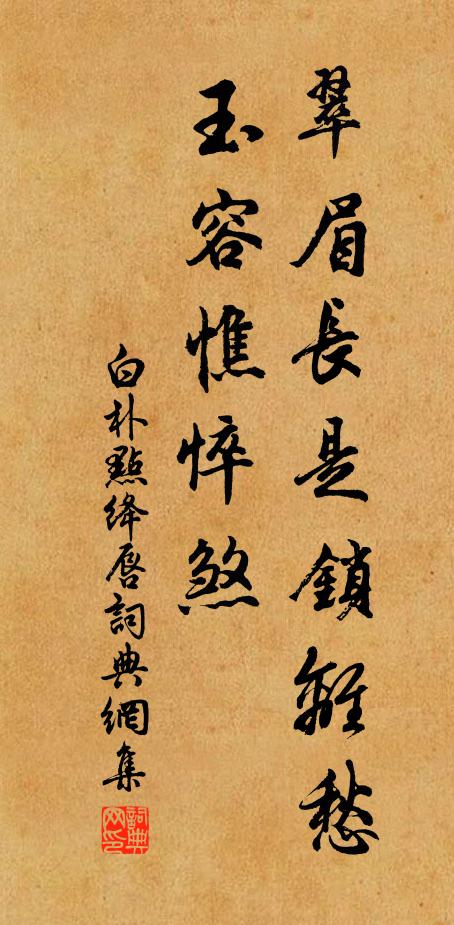 翠眉長是鎖離愁
玉容憔悴煞
白朴點絳唇詞典網集
詞典网印